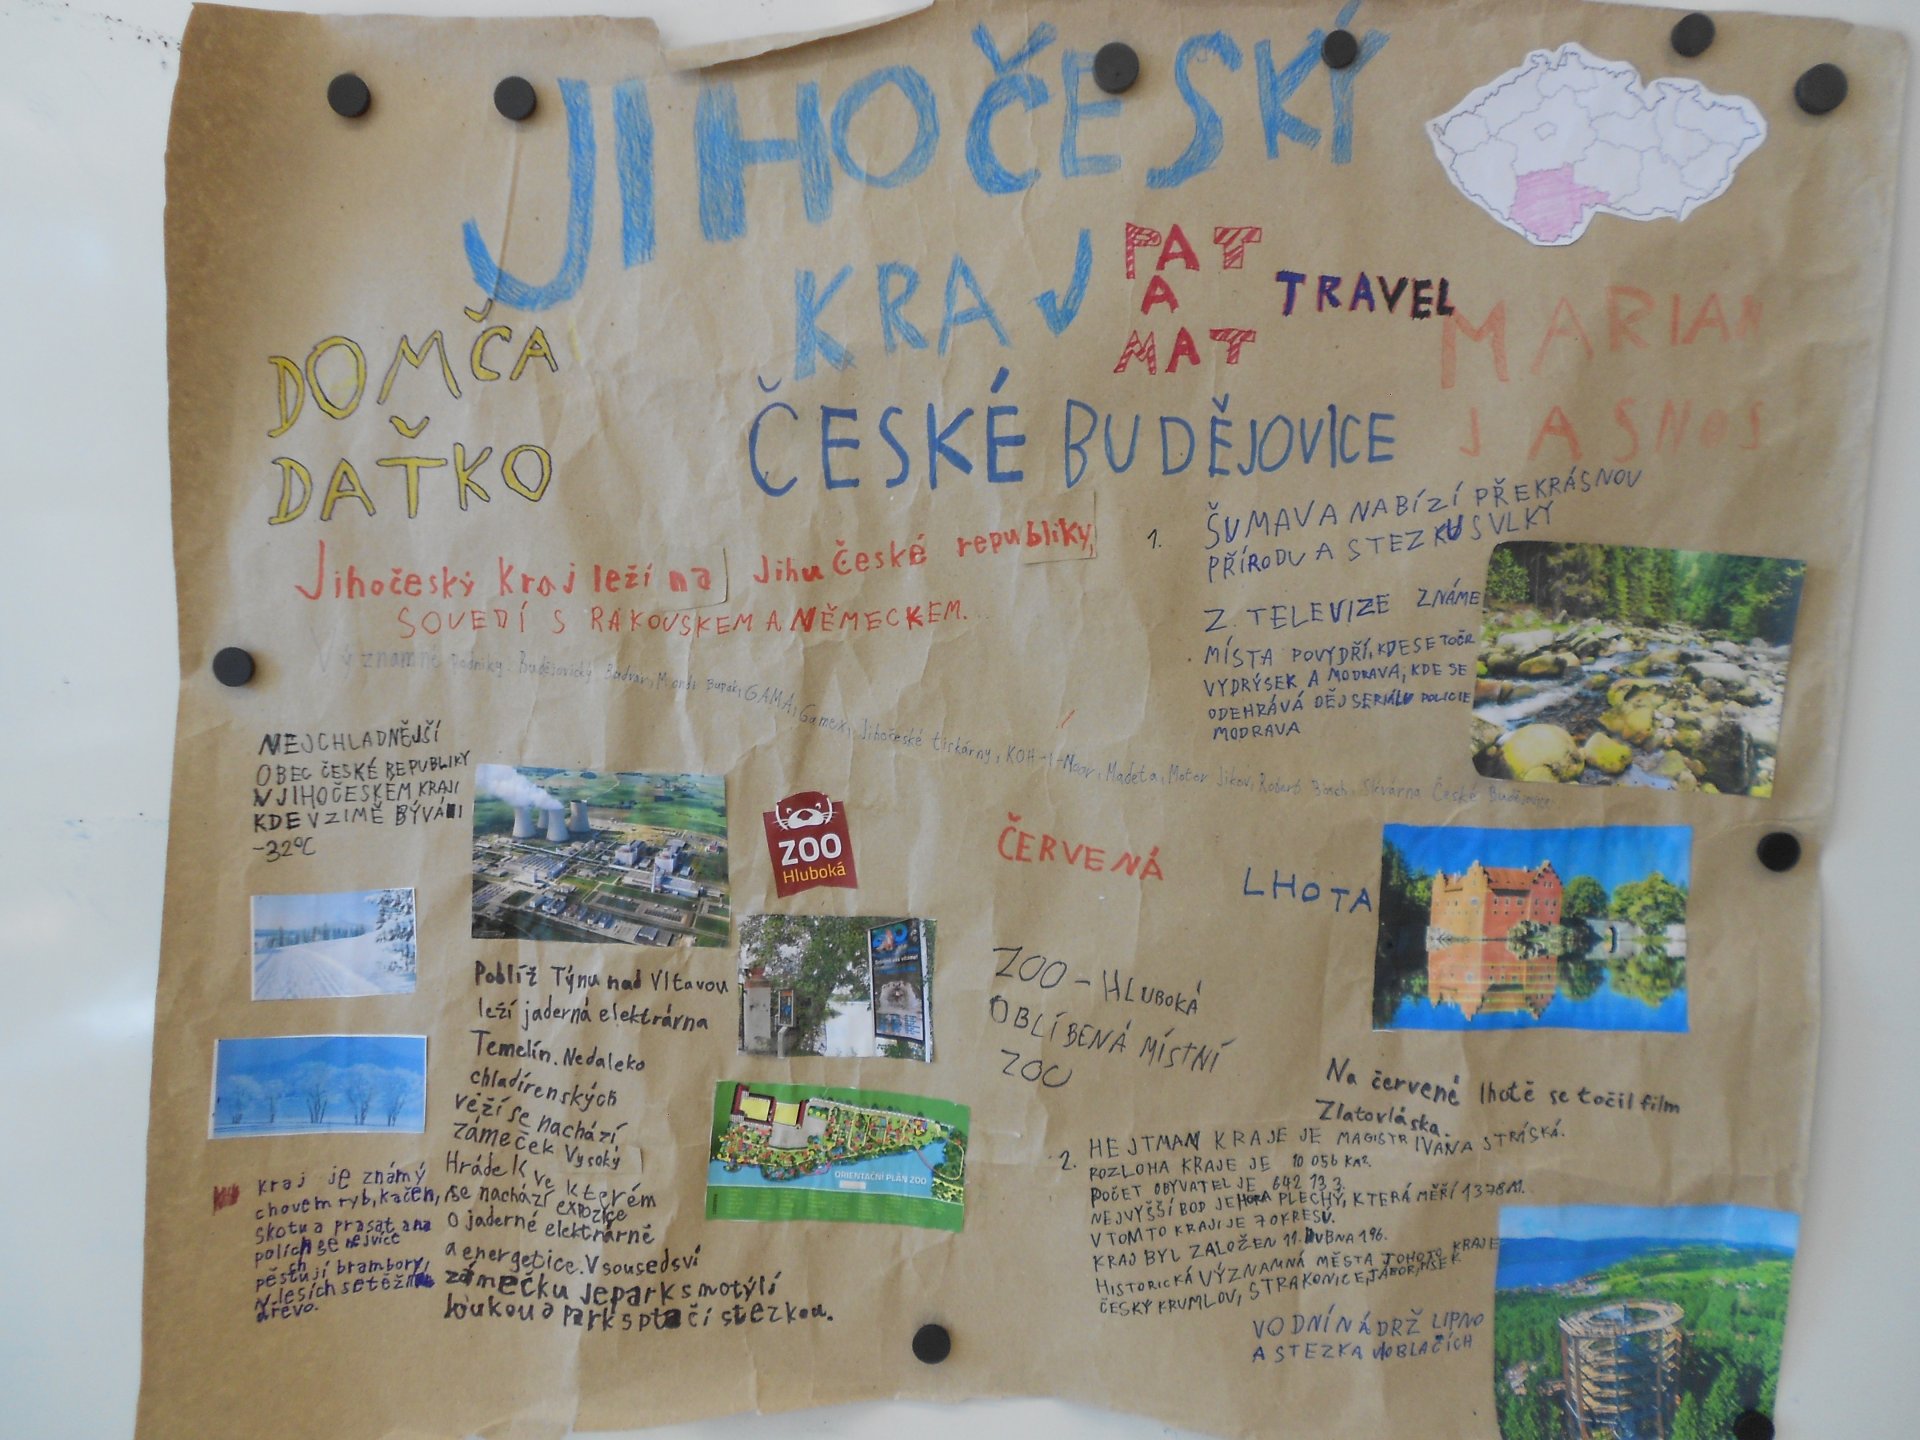 JIHOČESKÝ
KRAJ
PAT
A
MAT
TRAVEL
DOMČA
DAŤKO
MARIAN
JASNOS
ČESKÉ BUDĚJOVICE
Jihočeský kraj leží na Jihu České republiky,
SOUEDÍ S RAKOUSKEM A NĚMECKEM.
Významné podniky: Budějovický Budvar, Mondi Bupak, GAMA, Gamex, Jihočeské tiskárny, KOH-I-Noor, Madeta, Motor Jikov, Robert Bosch, Škvárna České Budějovice
1. ŠUMAVA NABÍZÍ PŘEKRÁSNOU
PŘÍRODU A STEZKU S VLKY
Z. TELEVIZE ZNÁME
MÍSTA POVYDŘÍ, KDE SE TOČR
VYDRÝSEK A MODRAVA, KDE SE
ODEHRÁVÁ DĚJ SERIÁLU POLICIE
MODRAVA
NEJCHLADNĚJŠÍ
OBEC ČESKÉ REPUBLIKY
V JIHOČESKÉM KRAJI
KDE V ZIMĚ BÝVÁ I
-32°C
ZOO
Hluboká
ČERVENÁ LHOTA
Poblíž Týnu nad Vltavou
leží jaderná elektrárna
Temelín. Nedaleko
chladírenských
věží se nachází
zámeček Vysoký
Hrádek ve kterém
se nachází expozice
o jaderné elektrárně
a energetice. V sousedsví
zámečku je park s motýlí
loukou a park s ptačí stezkou.
ZOO - HLUBOKÁ
OBLÍBENÁ MÍSTNÍ
ZOO
ORIENTAČNÍ PLÁN ZOO
Na červené lhotě se točil film
Zlatovláska.
2. HEJTMAN KRAJE JE MAGISTR IVANA STRÁSKÁ.
ROZLOHA KRAJE JE 10 056 KM².
POČET OBYVATEL JE 642 133.
NEJVYŠŠÍ BOD JE HORA PLECHÝ, KTERÁ MĚŘÍ 1378 M.
V TOMTO KRAJI JE 7 OKRESŮ.
KRAJ BYL ZALOŽEN 11. DUBNA 196.
HISTORICKÁ VÝZNAMNÁ MĚSTA TOHOTO KRAJE
ČESKÝ KRUMLOV, STRAKONICE, TÁBOR, PÍSEK
VODNÍ NÁDRŽ LIPNO
A STEZKA V OBLAČÍCH
kraj je známý
chovem ryb, kačen,
skotu a prasat a na
polích se nejvíce
pěstují brambory,
v lesích se těží
dřevo.